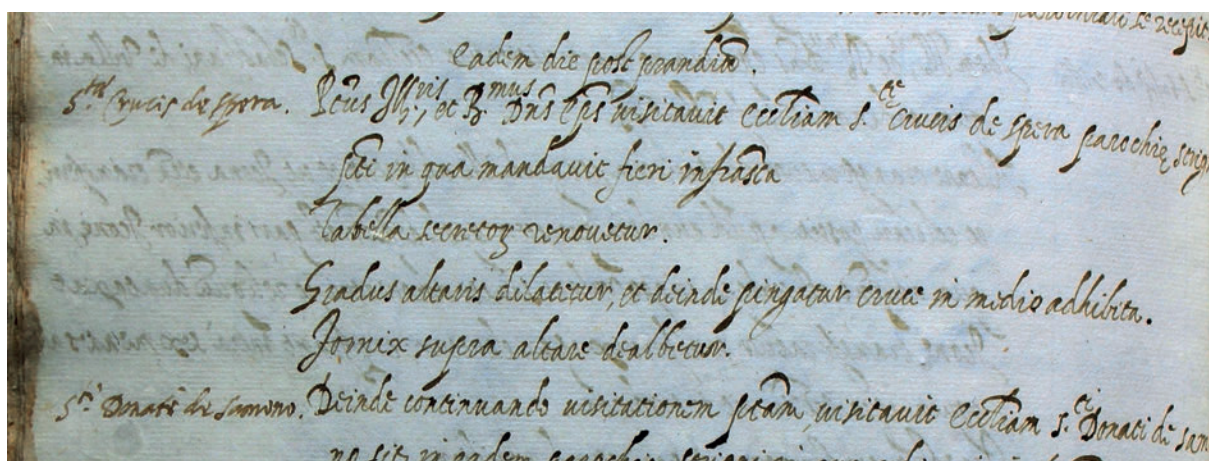 se recepit
Eadem die post prandiū.
S.tæ Crucis de Spera. Pctus Ill.ris, et R.mus Dñs Eps visitavit Eccliam S.te Crucis de Spera parochię Strig
pti in qua mandavit fieri infrasta
Tabella secretoꝝ renovetur.
Gradus altaris dilatetur, et deinde pingatur cruce in medio adhibita.
Fornix supra altare dealbetur.
S.ti Donati de Samono. Deinde continuando visitationem ptam, visitavit Eccliam S.ti Donati de Sam
no sit. in eadem parochia